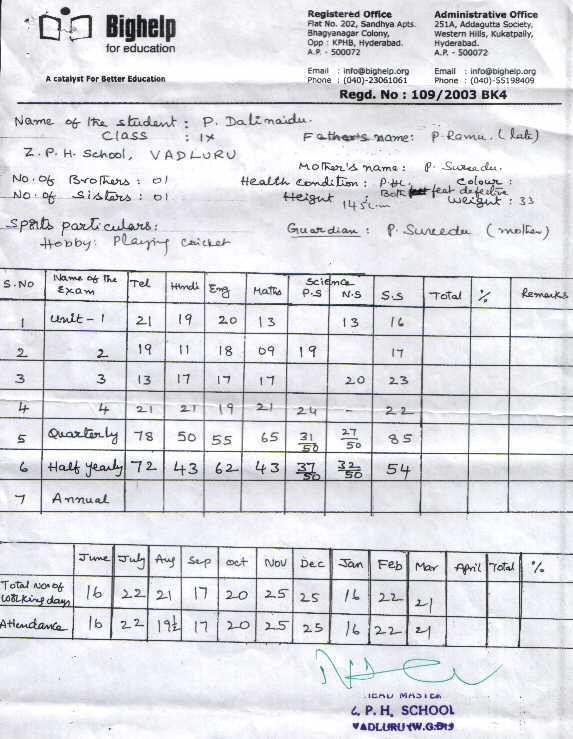 Bighelp
for education
A catalyst For Better Education
Registered Office
Flat No. 202, Sandhya Apts.
Bhagyanagar Colony,
Opp : KPHB, Hyderabad.
A.P. - 500072
Email : info@bighelp.org
Phone : (040)-23061061
Administrative Office
251A, Addagutta Society,
Western Hills, Kukatpally,
Hyderabad.
A.P. - 500072
Email : info@bighelp.org
Phone : (040)-55198409
Regd. No : 109/2003 BK4
Name of the student : P. Dalinaidu.
Class : IX Father's name: P. Ramu. (late)
Z. P. H. School, VADLURU
Mother's name : P. Sureedu.
No. of Brothers : 01 Health condition : P.H.C Colour :
Both feet defective
No. of Sisters : 01 Height : 145 c.m Weight : 33
Sports particulars: Guardian : P. Sureedu (mother)
Hobby: Playing cricket
S.NO Name of the Exam Tel Hindi Eng Maths Science P.S N.S S.S Total % Remarks
1 Unit - 1 21 19 20 13 13 16
2 2 19 11 18 09 19 17
3 3 13 17 17 17 20 23
4 4 21 21 19 21 24 - 22
5 Quarterly 78 50 55 65 31/50 27/50 85
6 Half yearly 72 43 62 43 37/50 32/50 54
7 Annual
June July Aug Sep Oct Nov Dec Jan Feb Mar April Total %
Total No. of working days 16 22 21 17 20 25 25 16 22 21
Attendance 16 22 19½ 17 20 25 25 16 22 21
HEAD MASTER
Z. P. H. SCHOOL
VADLURU (W.G.Dt)